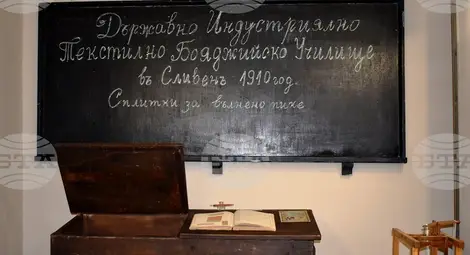 Държавно Индустриялно
Текстилно Бояджийско Училище
въ Сливенъ 1910 год.
Сплитки за вълнено пике
БТА
БТА
БТА
БТА
БТА
БТА